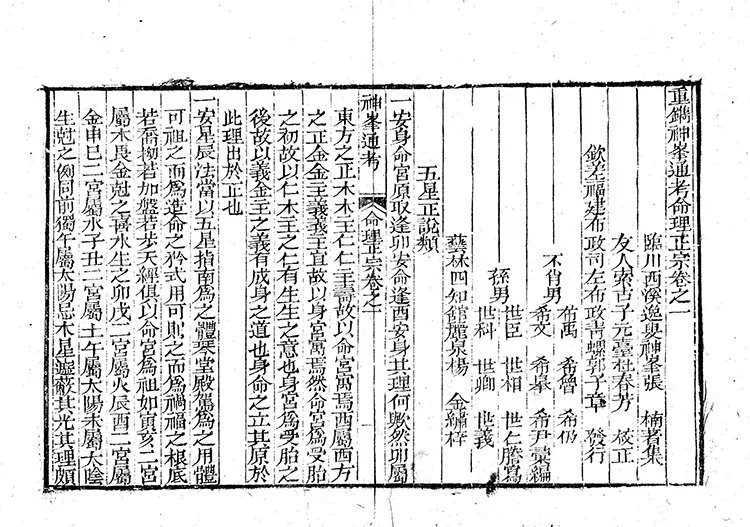 重鐫神峯通考命理正宗卷之一
臨川西溪逸叟神峯張 楠著集
友人索古子元臺杜春芳 校正
欽差福建布政司左布政青螺郭子章 發行
希禹 希曾 希伋
不肖男 希文 希皋 希尹 彙編
孫男 世臣 世相 世仁 謄寫
世科 世卿 世義
藝林四知館麗泉楊 金繡梓
五星正說類
一安身命宮原取逢卯安命逢酉安身其理何歟然卯屬
神峯通考 命理正宗卷之一
東方之正木木主仁仁主壽故以命宮寓焉酉屬西方
之正金金主義義主宜故以身宮寓焉然命宮為受胎
之初故以仁木主之仁有生生之意也身宮為受胎之
後故以義金主之義有成身之道也身命之立其原於
此理出於正也
一安星辰法當以五星指南為之體琴堂殿駕為之用體
可祖之而為造命之矜式用可則之而為禍福之根底
若喬拗若加盤若步天經俱以命宮為祖如寅亥二宮
屬木畏金尅之喜水生之卯戌二宮屬火辰酉二宮屬
金申巳二宮屬水子丑二宮屬土午屬太陽未屬太陰
生尅之例同前獨午屬太陽忌木星遮蔽其光其理頗